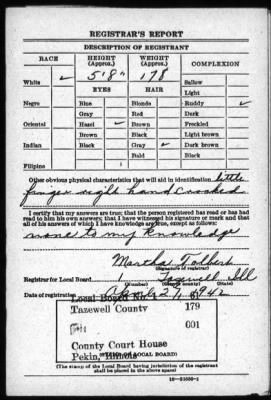 REGISTRAR'S REPORT
DESCRIPTION OF REGISTRANT
RACE HEIGHT (Approx.) WEIGHT (Approx.) COMPLEXION
White ✓ 5'8" 178 Sallow
Light
EYES HAIR
Negro Blue Blonde Ruddy ✓
Gray Red Dark
Oriental Hazel ✓ Brown Freckled
Brown Black Light brown
Indian Black Gray ✓ Dark brown
Bald Black
Filipino
Other obvious physical characteristics that will aid in identification little
finger right hand crooked
I certify that my answers are true; that the person registered has read or has had
read to him his own answers; that I have witnessed his signature or mark and that
all of his answers of which I have knowledge are true, except as follows:
none to my knowledge
Martha Tolbert
(Signature of registrar)
Registrar for Local Board 1 Tazewell Ill
Date of registration 27, 1942
Local Board No. 1 67
Tazewell County 179
601
County Court House
Pekin, Illinois
(STAMP OF LOCAL BOARD)
(The stamp of the Local Board having jurisdiction of the registrant
shall be placed in the above space)